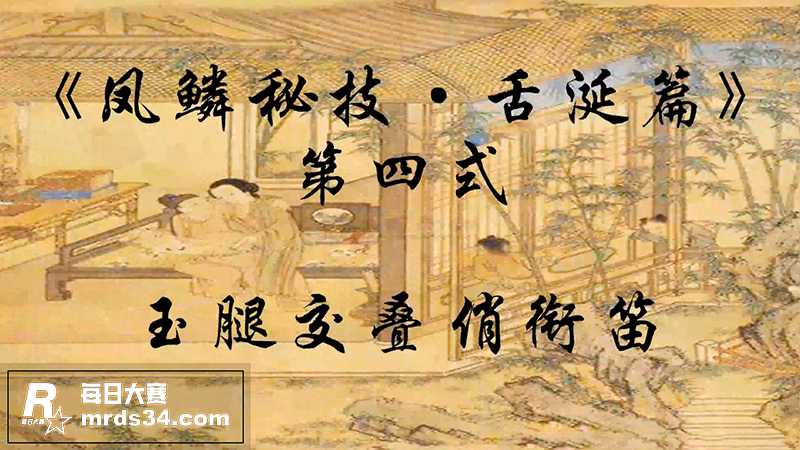 《凤鳞秘技·舌涎篇》
第四式
玉腿交叠俏衔笛
R
每日大赛
每日大赛
mrds34.com